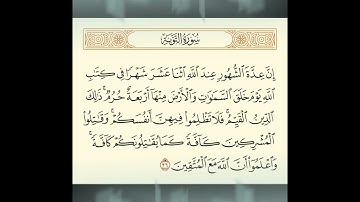 سُورَةُ التَّوْبَةِ
إِنَّ عِدَّةَ ٱلشُّهُورِ عِندَ ٱللَّهِ ٱثْنَا عَشَرَ شَهْرًا فِي كِتَٰبِ
ٱللَّهِ يَوْمَ خَلَقَ ٱلسَّمَٰوَٰتِ وَٱلْأَرْضَ مِنْهَآ أَرْبَعَةٌ حُرُمٌ ۚ ذَٰلِكَ
ٱلدِّينُ ٱلْقَيِّمُ ۚ فَلَا تَظْلِمُوا۟ فِيهِنَّ أَنفُسَكُمْ ۚ وَقَٰتِلُوا۟
ٱلْمُشْرِكِينَ كَآفَّةً كَمَا يُقَٰتِلُونَكُمْ كَآفَّةً ۚ
وَٱعْلَمُوٓا۟ أَنَّ ٱللَّهَ مَعَ ٱلْمُتَّقِينَ ٣٦